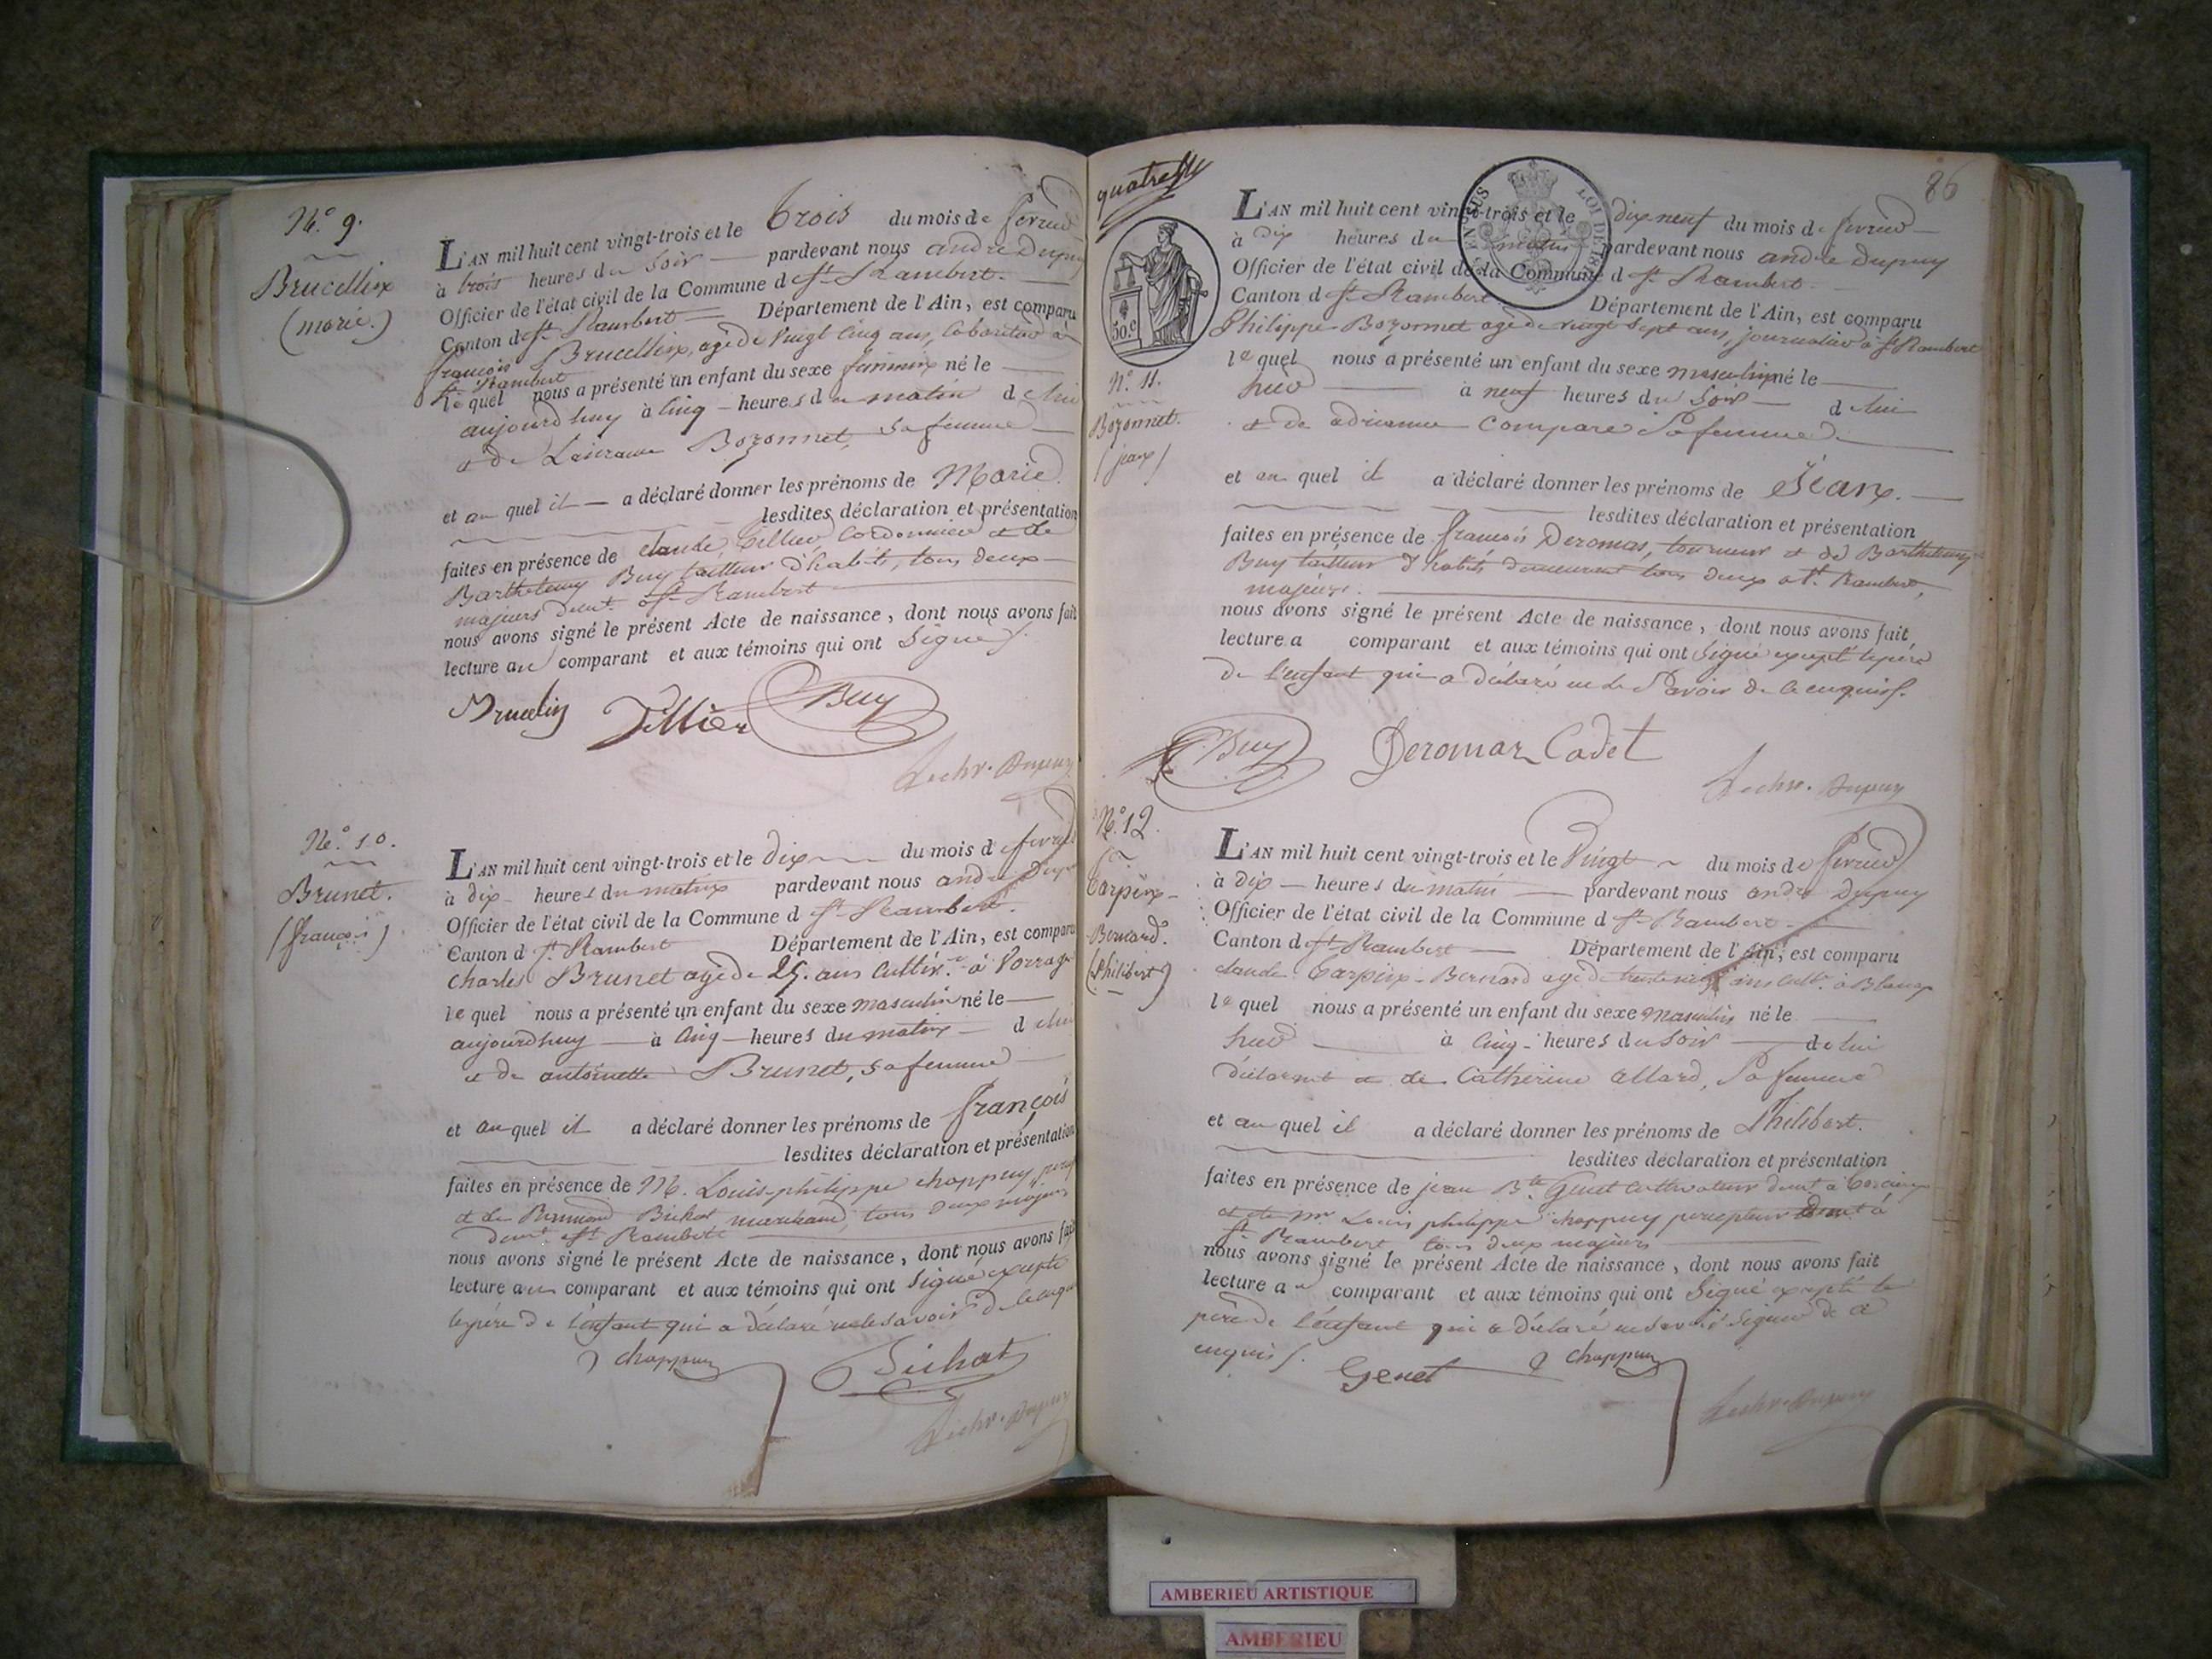 N.º 9.
Brucellin
(marie.)
L'AN mil huit cent vingt-trois et le trois du mois de fevrier
à trois heures du soir pardevant nous andré Dupuy
Officier de l'état civil de la Commune d St. Rambert.
Canton d St. Rambert Département de l'Ain, est comparu
françois Brucellin, agé de vingt cinq ans, laboureur à
St. Rambert
lequel nous a présenté un enfant du sexe feminin né le
aujourd'huy à cinq heures du matin de lui
et de Bozonnet, sa femme
et au quel il a déclaré donner les prénoms de Marie
lesdites déclaration et présentation
faites en présence de claude Tillier cordonnier et de
Barthelemy Buy tailleur d'habits, tous deux
majeurs demt. à St. Rambert
nous avons signé le présent Acte de naissance, dont nous avons fait
lecture au comparant et aux témoins qui ont signé.
Brucelin Tillier Buy
Dupuy
N.º 10.
Brunet.
(françois)
L'AN mil huit cent vingt-trois et le dix du mois d fevrier
à dix heures du matin pardevant nous andré Dupuy
Officier de l'état civil de la Commune d St. Rambert.
Canton d St. Rambert Département de l'Ain, est comparu
charles Brunet agé de 25. ans cultivr. à
lequel nous a présenté un enfant du sexe masculin né le
aujourd'huy à cinq heures du matin de lui
et de antoinette Brunet, sa femme
et au quel il a déclaré donner les prénoms de françois
lesdites déclaration et présentation
faites en présence de M. Louis-philippe chappuy
et de Bichat marchand, tous deux majeurs
demt. à St. Rambert
nous avons signé le présent Acte de naissance, dont nous avons fait
lecture au comparant et aux témoins qui ont signé excepté
le père de l'enfant qui a déclaré ne le savoir de ce enquis
chappuy Bichat
Dupuy
86
50 c
EN SUS
LOI DE
N.º 11.
Bozonnet.
(jean)
L'AN mil huit cent vingt-trois et le dix neuf du mois de fevrier
à dix heures du matin pardevant nous andré Dupuy
Officier de l'état civil de la Commune d St. Rambert.
Canton d St. Rambert Département de l'Ain, est comparu
Philippe Bozonnet agé de vingt sept ans, journalier à St. Rambert
lequel nous a présenté un enfant du sexe masculin né le
hier à neuf heures du soir de lui
et de adrienne Compare sa femme
et au quel il a déclaré donner les prénoms de Jean.
lesdites déclaration et présentation
faites en présence de françois Deromas, tourneur et de Barthelemy
Buy tailleur d'habits demeurant tous deux à St. Rambert,
majeurs.
nous avons signé le présent Acte de naissance, dont nous avons fait
lecture a comparant et aux témoins qui ont signé excepté le père
de l'enfant qui a déclaré ne le savoir de ce enquis.
Buy Deromas Cadet
Dupuy
N.º 12.
Carpin-
Bernard.
(Philibert)
L'AN mil huit cent vingt-trois et le Vingt du mois de fevrier
à dix heures du matin pardevant nous andré Dupuy
Officier de l'état civil de la Commune d St. Rambert
Canton d St. Rambert Département de l'Ain, est comparu
claude Carpin-Bernard agé de ans cultr. à
lequel nous a présenté un enfant du sexe masculin né le
hier à cinq heures du soir de lui
déclarant et de Catherine allard, sa femme
et au quel il a déclaré donner les prénoms de Philibert.
lesdites déclaration et présentation
faites en présence de jean Bte. Genet cultivateur demt. à
et de Mr. Louis philippe chappuy percepteur demt. à
St. Rambert tous deux majeurs
nous avons signé le présent Acte de naissance, dont nous avons fait
lecture au comparant et aux témoins qui ont signé excepté le
père de l'enfant qui a déclaré ne savoir signer de ce
enquis.
Genet chappuy
Dupuy
AMBERIEU ARTISTIQUE
AMBERIEU